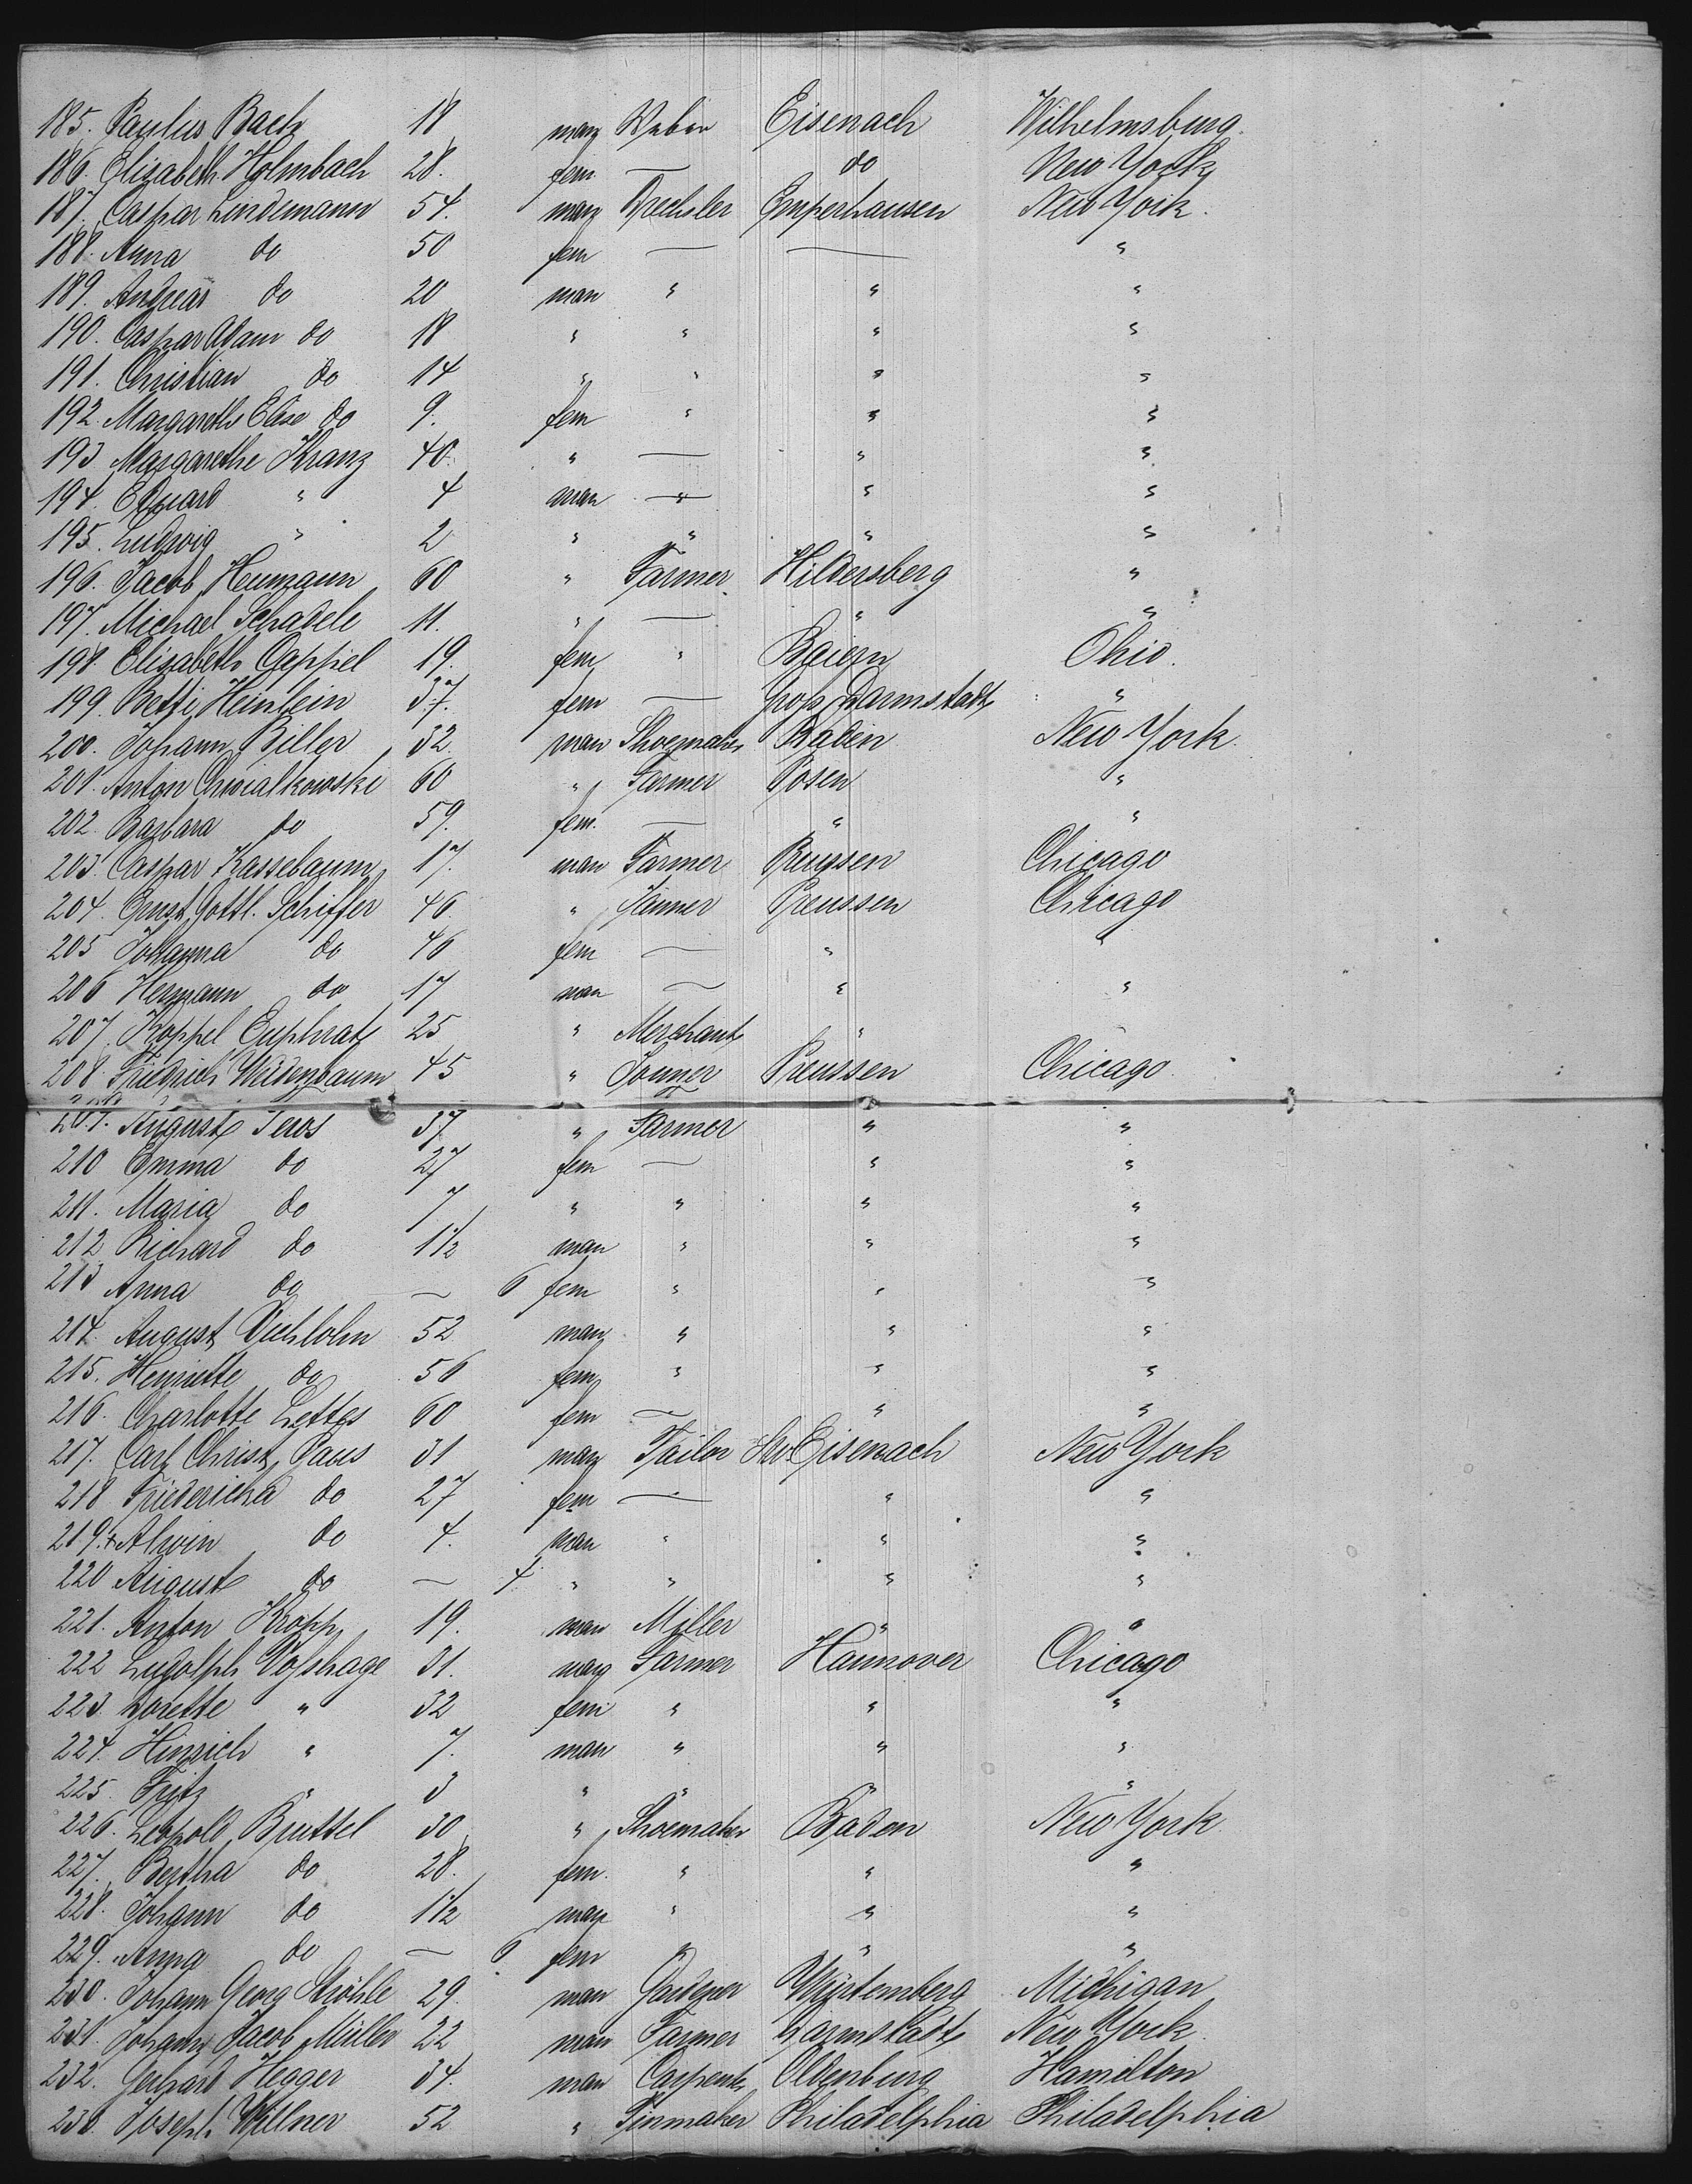 185. Paulus Bach 18 man Weber Eisenach Wilhelmsburg.
186. Elisabeth Holmbach 28. fem. — do New York
187. Caspar Lindemann 54. man Drechsler Emperhausen New York.
188. Anna do 50 fem — — "
189. Andreas do 20 man " " "
190. Caspar Adam do 18 " " " "
191. Christian do 14 " " " "
192. Margarethe Elise do 9. fem " " "
193 Margarethe Kranz 40. " — " "
194. Eduard " 4 man — " "
195. Ludwig " 2 " " " "
196. Jacob Heumann 60 " Farmer Hildersberg "
197. Michael Schadele 11. " — " "
198. Elisabeth Cappel 19. fem " Baiern Ohio.
199. Betti Heinlein 37. fem — Gross Darmstadt "
200. Johann Biller 32. man Shoemaker Baden New York.
201. Anton Chwialkowski 60 " Farmer Posen "
202. Barbara do 59. fem. — " "
203. Caspar Kassebaum 17. man Farmer Preussen Chicago
204. Ernst Gottl. Schiffer 46. " Farmer Preussen Chicago
205 Johanna do 46 fem — " "
206 Hermann do 17 man — " "
207. Koppel Euphrat 25 " Merchant "
208. Friedrich Weidenbaum 45 " Preussen Chicago.
209. August 37 " Farmer " "
210 Emma do 27 fem — " "
211. Maria do 7 " " " "
212 Richard do 1½ man " " "
213 Anna do — 6 fem " " "
214. August Viehlohn 52 man " " "
215. Henriette do 56 fem " " "
216. Charlotte Lettes 60 fem — " "
217. Carl Christ. Paus 31 man Tailor Eisenach New York
218 Fridericka do 27 fem — " "
219. Alwin do 4. man " " "
220 August do — 4 " " " "
221. Anton Kropp 19. man Miller " "
222 Ludolph Vosshage 31. man Farmer Hannover Chicago
223. Dorette " 32 fem " " "
224. Hinrich " 7. man " " "
225. Fritz " 3 " " " "
226. Leopold Bruttel 30 " Shoemaker Baden New York.
227. Bertha do 28. fem. " " "
228. Johann do 1½ man " " "
229. Anna do — 6 fem " " "
230. Johann Georg Ströhle 29. man Gardener Würtemberg Michigan
231. Johann Jacob Müller 22 man Farmer Darmstadt New York.
232. Gerhard Hegger 34. man Carpenter Oldenburg Hamilton
233. Joseph Willner 52 " Tinmaker Philadelphia Philadelphia